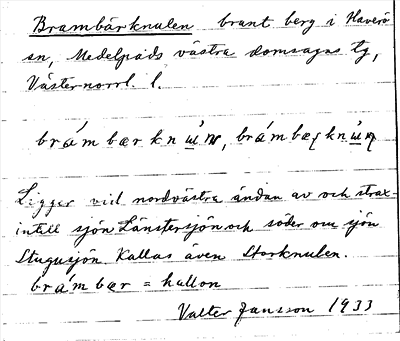 Brambärknulen brant berg i Haverö
sn, Medelpads västra domsagas tg,
Västernorrl. l.
brámbær kn
Ligger vid nordvästra ändan av och strax
intill sjön Länstersjön och söder om sjön
Stugusjön. Kallas även Storknulen.
brámbær = hallon
Valter Jansson 1933